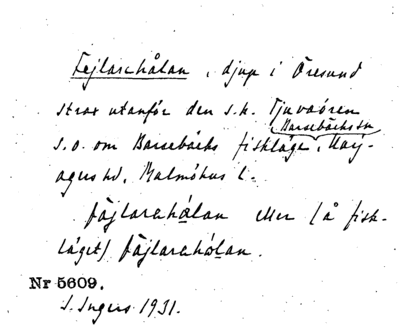 Fejlarehålan, djup i Öresund
strax utanför den s.k. Tjuvaören
Barsebäcks sn
s.o. om Barsebäcks fiskläge, Harj-
agers hd, Malmöhus l.
fäjlarehålan eller (å fisk-
läget) fäjlarehólan.
Nr 5609.
S. Ingers 1931.